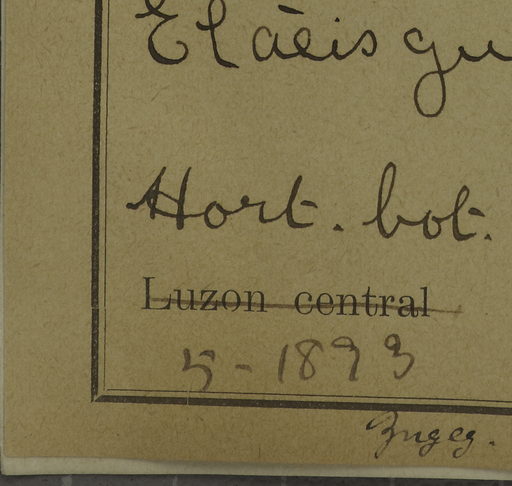 Elaëis gu
Hort. bot.
Luzon central
5-1893
Zugeg.